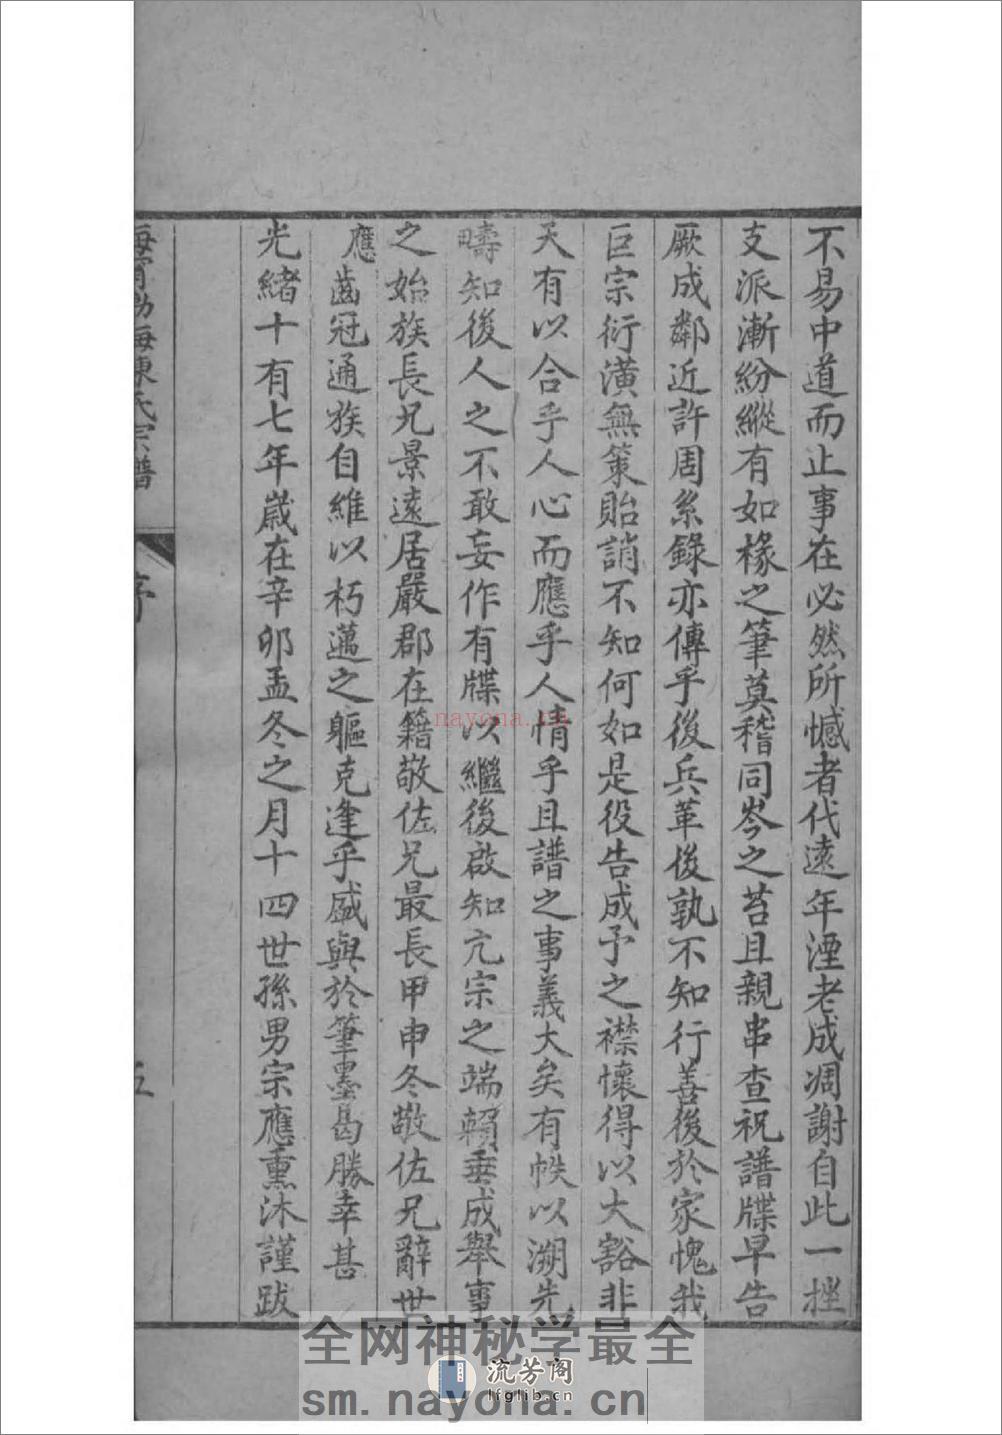 不易中道而止事在必然所憾者代遠年湮老成凋謝自此一挫
支派漸紛縱有如椽之筆莫稽同岑之苔且親串查祝譜牒早告
厥成鄰近許周系錄亦傳乎後兵革後孰不知行善後於家愧我
巨宗衍潢無策貽誚不知何如是役告成予之襟懷得以大豁非
天有以合乎人心而應乎人情乎且譜之事義大矣有帙以溯先
疇知後人之不敢妄作有牒以繼後啟知亢宗之端賴垂成舉事
之始族長兄景遠居嚴郡在籍敬佐兄最長甲申冬敬佐兄辭世
應齒冠通族自維以朽邁之軀克逢乎盛與於筆墨曷勝幸甚
光緒十有七年歲在辛卯孟冬之月十四世孫男宗應熏沐謹跋
海寧渤海陳氏宗譜
序
五
nayona.cn
全网神秘学最全
流芳阁
lfglib.cn
sm.nayona.cn